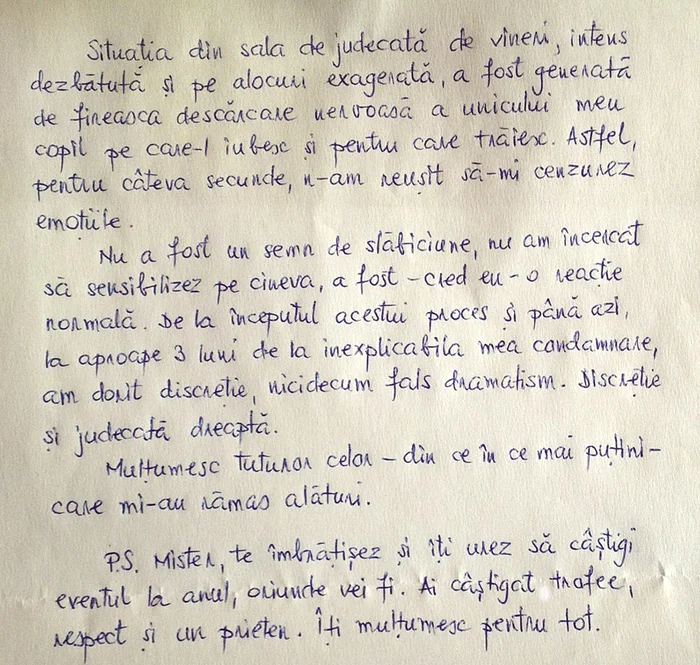 Situația din sala de judecată de vineri, intens
dezbătută și pe alocuri exagerată, a fost generată
de fireasca descărcare nervoasă a unicului meu
copil pe care-l iubesc și pentru care trăiesc. Astfel,
pentru câteva secunde, n-am reușit să-mi cenzurez
emoțiile.
Nu a fost un semn de slăbiciune, nu am încercat
să sensibilizez pe cineva, a fost - cred eu - o reacție
normală. De la începutul acestui proces și până azi,
la aproape 3 luni de la inexplicabila mea condamnare,
am dorit discreție, nicidecum fals dramatism. Discreție
și judecată dreaptă.
Mulțumesc tuturor celor - din ce în ce mai puțini -
care mi-au rămas alături.
P.S. Mister, te îmbrățișez și îți urez să câștigi
eventul la anul, oriunde vei fi. Ai câștigat trofee,
respect și un prieten. Îți mulțumesc pentru tot.